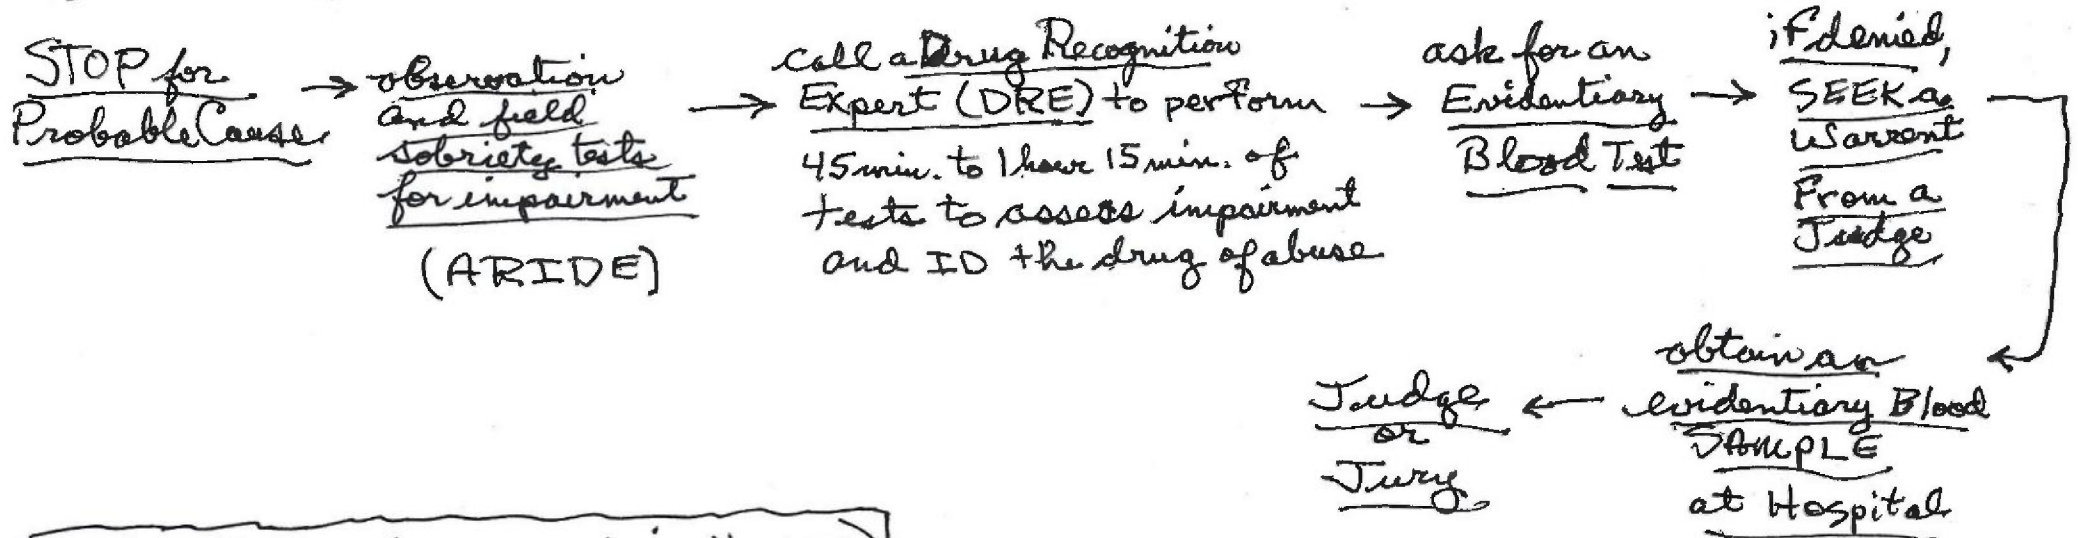 STOP for
Probable Cause
→ observation
and field
sobriety tests
for impairment
(ARIDE)
→ call a Drug Recognition
Expert (DRE) to perform
45 min. to 1 hour 15 min. of
tests to assess impairment
and ID the drug of abuse
→ ask for an
Evidentiary
Blood Test
→ if denied,
SEEK a
Warrent
From a
Judge
obtain an
evidentiary Blood
SAMPLE
at Hospital
← Judge
or
Jury